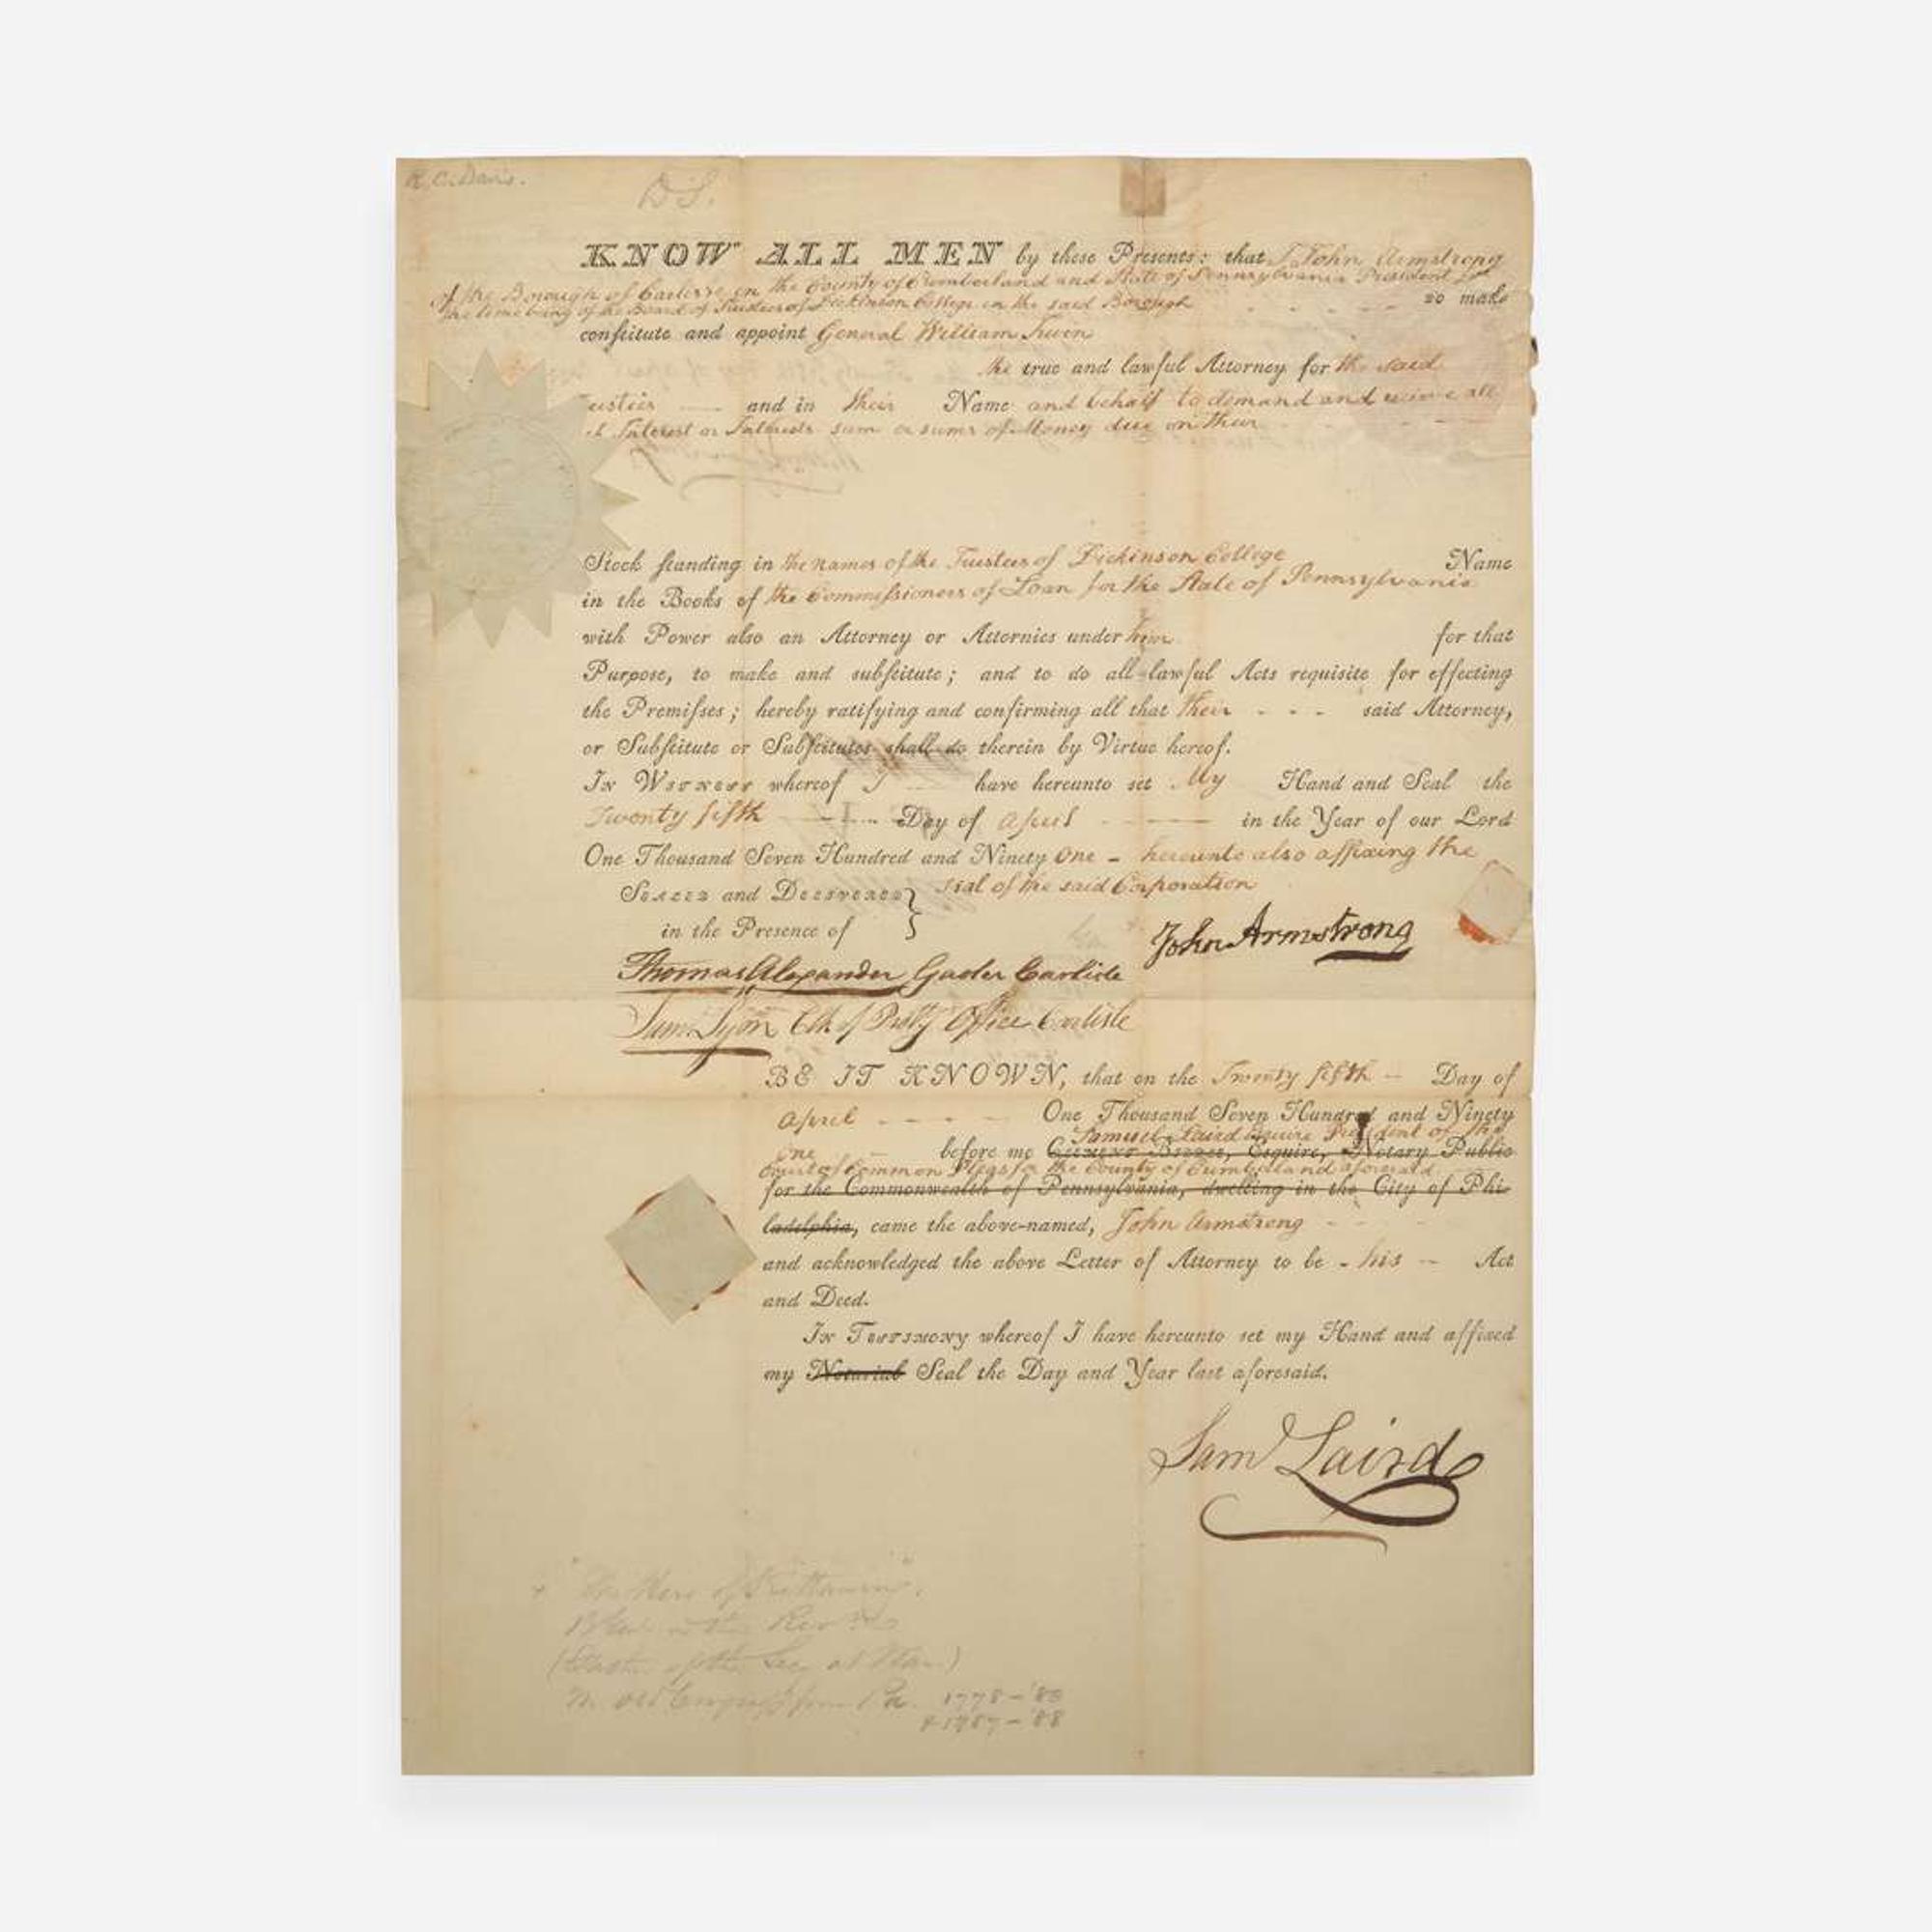 R. C. Davis.
D S.
KNOW ALL MEN by these Presents: that I John Armstrong
of the Borough of Carlisle in the County of Cumberland and State of Pennsylvania President for
the time being of the Board of Trustees of Dickinson College in the said Borough do make
conſtitute and appoint General William Irwin
the true and lawful Attorney for the said
Trustees and in their Name and behalf to demand and receive all
Interest or Interests sum or sums of Money due on their
Stock ſtanding in the names of the Trustees of Dickinson College Name
in the Books of the Commiſsioners of Loan for the State of Pennsylvania
with Power also an Attorney or Attornies under him for that
Purpose, to make and subſtitute; and to do all lawful Acts requisite for effecting
the Premiſses; hereby ratifying and confirming all that their - - - said Attorney,
or Subſtitute or Subſtitutes shall do therein by Virtue hereof.
In Witness whereof I have hereunto set My Hand and Seal the
Twenty fifth Day of April in the Year of our Lord
One Thousand Seven Hundred and Ninety One - hereunto also affixing the
Sealed and Delivered } seal of the said Corporation
in the Presence of
John Armstrong
Thomas Alexander Gaoler Carlisle
Sam. Lyon Clk of Proty Office Carlisle
BE IT KNOWN, that on the Twenty fifth -- Day of
April - - - - - One Thousand Seven Hundred and Ninety
Samuel Laird Esquire President of the
One before me Clement Biddle, Esquire, Notary Public
Court of Common Pleas for the County of Cumberland aforesaid
for the Commonwealth of Pennsylvania, dwelling in the City of Phi-
ladelphia, came the above-named, John Armstrong - - -
and acknowledged the above Letter of Attorney to be - his -- Act
and Deed.
In Testimony whereof I have hereunto set my Hand and affixed
my Notarial Seal the Day and Year last aforesaid.
Saml Laird
"The Hero of Kittanning".
(Father of the Sec. at War)
M. Old Congress from Pa. 1778-'80
& 1787-'88